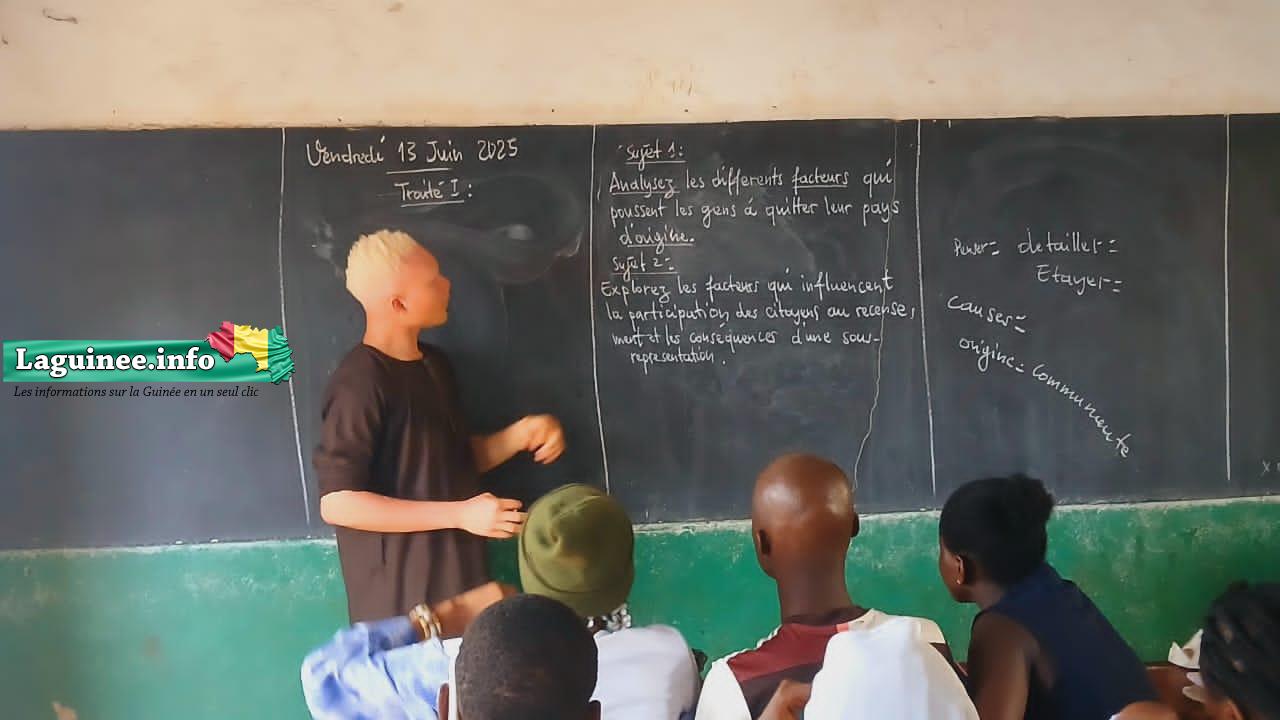 Vendredi 13 Juin 2025
Traité I :
Sujet 1 :
Analysez les différents facteurs qui
poussent les gens à quitter leur pays
d'origine.
Sujet 2 :
Explorez les facteurs qui influencent
la participation des citoyens au recense,
ment et les conséquences d'une sous-
représentation.
detailler =
Etayer =
Causes =
origine = Communauté
Laguinee.info
Les informations sur la Guinée en un seul clic